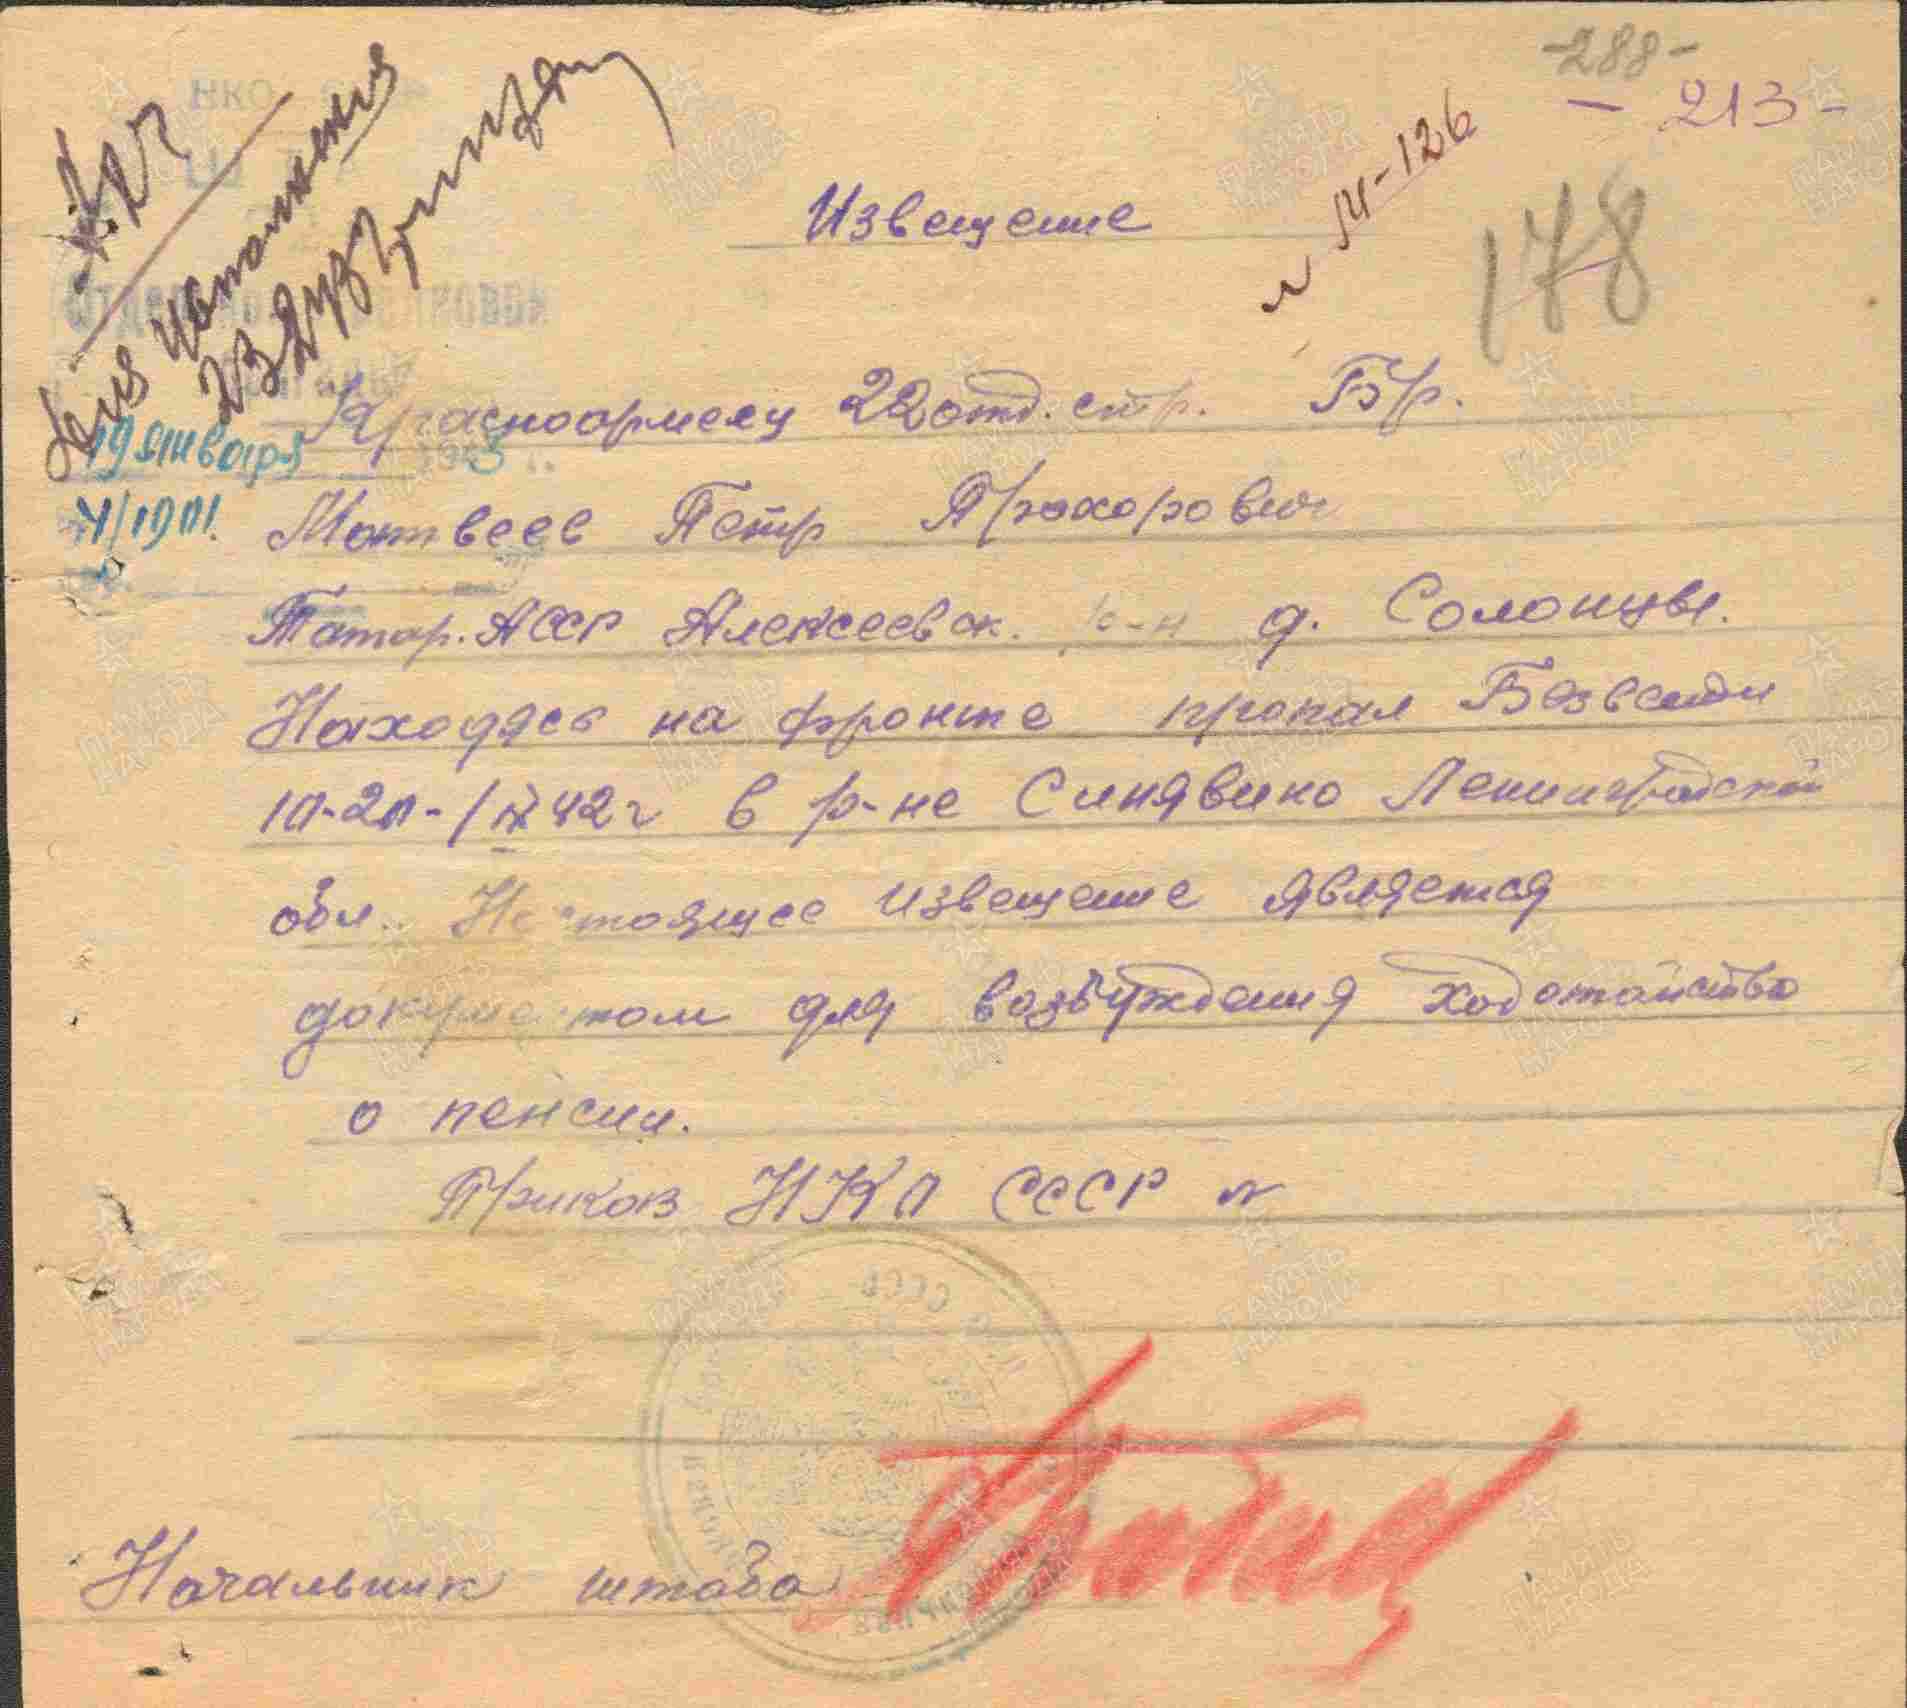 -288-
- 213 -
НКО
№ М-126
178
Извещение
для исполнения
23 2 43
19 января 1943 г.
Красноармеец 22 отд. стр. Бр.
Матвеев Петр Прохорович
Татар. АССР Алексеевск. р-н д. Солонцы.
Находясь на фронте пропал Безвести
10-20-/IX 42 г в р-не Синявино Ленинградской
обл. Настоящее извещение является
документом для возбуждения ходотайства
о пенсии.
Приказ НКО СССР №
СССР
Начальник штаба